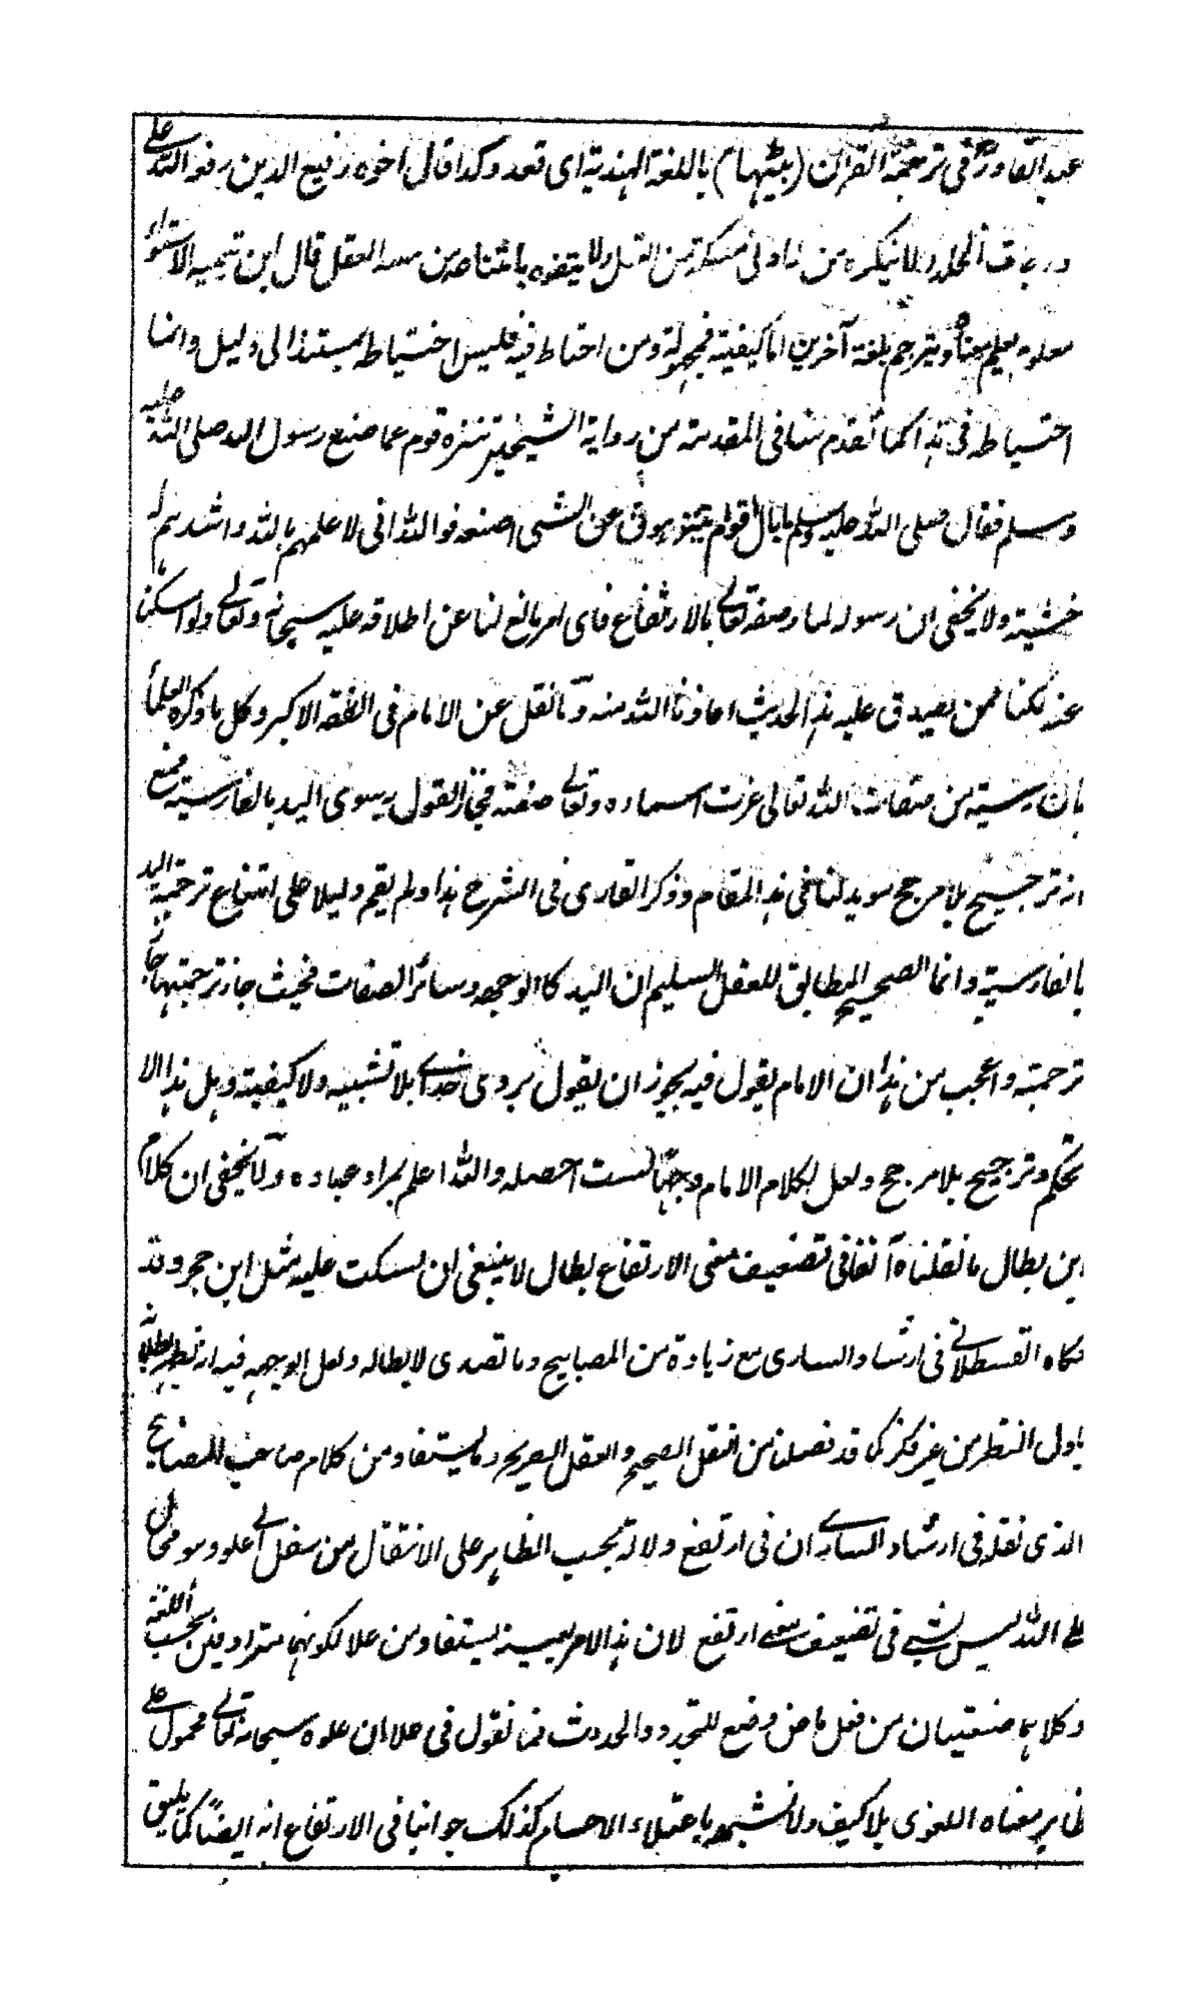 عبد القادر في ترجمة القران (بيٹها) باللغة الهندية اى قعد وكذا قال اخوه رفيع الدين رفعه الله على
درجات الخلد ولا ينكره من له ادنى مسكة من العقل ولا يتفوه بامتناعه من مسه العقل قال ابن تيمية الاستواء
معلوم يعلم معناه ويترجم بلغة آخرين اما كيفيته فمجهولة ومن احتاط فيه فليس احتياطه بمستند الى دليل وانما
احتياطه في هذا كما تقدم منا في المقدمة من رواية الشيخين تنزه قوم عما صنع رسول الله صلى الله عليه
وسلم فقال صلى الله عليه وسلم ما بال اقوام يتنزهون عن الشى اصنعه فوالله انى لا علمهم بالله واشدهم له
خشية ولا يخفى ان رسوله لما وصفه تعالى بالارتفاع فاى امر مانع لنا عن اطلاقه عليه سبحانه وتعالى ولو امسكنا
عنه لكنا ممن يصدق عليه هذا الحديث اعاذنا الله منه وما نقل عن الامام في الفقه الاكبر وكل ما ذكره العلماء
بالفارسية من صفات الله تعالى عزت اسماءه وتعالى صفته فجائز القول به سوى اليد بالفارسية فمع
انه ترجيح بلا مرجح مويد لنا فى هذا المقام وذكر القارى فى الشرح هذا ولم يقم دليلا على امتناع ترجمة اليد
بالفارسية وانما الصحيح المطابق للعقل السليم ان اليد كالوجه وسائر الصفات فحيث جاز ترجمتها جاز
ترجمته واعجب من هذا ان الامام يقول فيه يجوز ان يقول بروى خداے بلا تشبيه ولا كيفية وهل هذا الا
تحكم وترجيح بلا مرجح ولعل لكلام الامام وجها لست احصله والله اعلم بمراد عباده ولا يخفى ان كلام
ابن بطال ما نقلناه آنفا فى تضعيف معنى الارتفاع بطال لا ينبغى ان يسكت عليه مثل ابن حجر وقد
حكاه القسطلانى فى ارشاد السارى مع زيادة من المصابيح وما تصدى لابطاله ولعل الوجه فيه انه تظهر بطلانه
باول النظر من غير فكر كما قد فصلنا من النقل الصحيح والعقل الصريح وما يستفاد من كلام صاحب المصابيح
الذى نقله فى ارشاد السارى ان فى ارتفع دلالة بحسب الظاهر على الانتقال من سفل الى علو وهو محال
على الله ليس بشى فى تضعيف معنى ارتفع لان هذا الامر بعينه يستفاد من علا لكونهما مترادفين بحسب اللغة
وكلاهما صيغتان من فعل ماض وضع للتجدد والحدوث فما نقول فى علا ان علوه سبحانه تعالى محمول على
ظاهر معناه اللغوى بلا كيف ولا تشبيه باعتلاء الاجسام كذلك جوابنا فى الارتفاع انه ايضا كما يليق